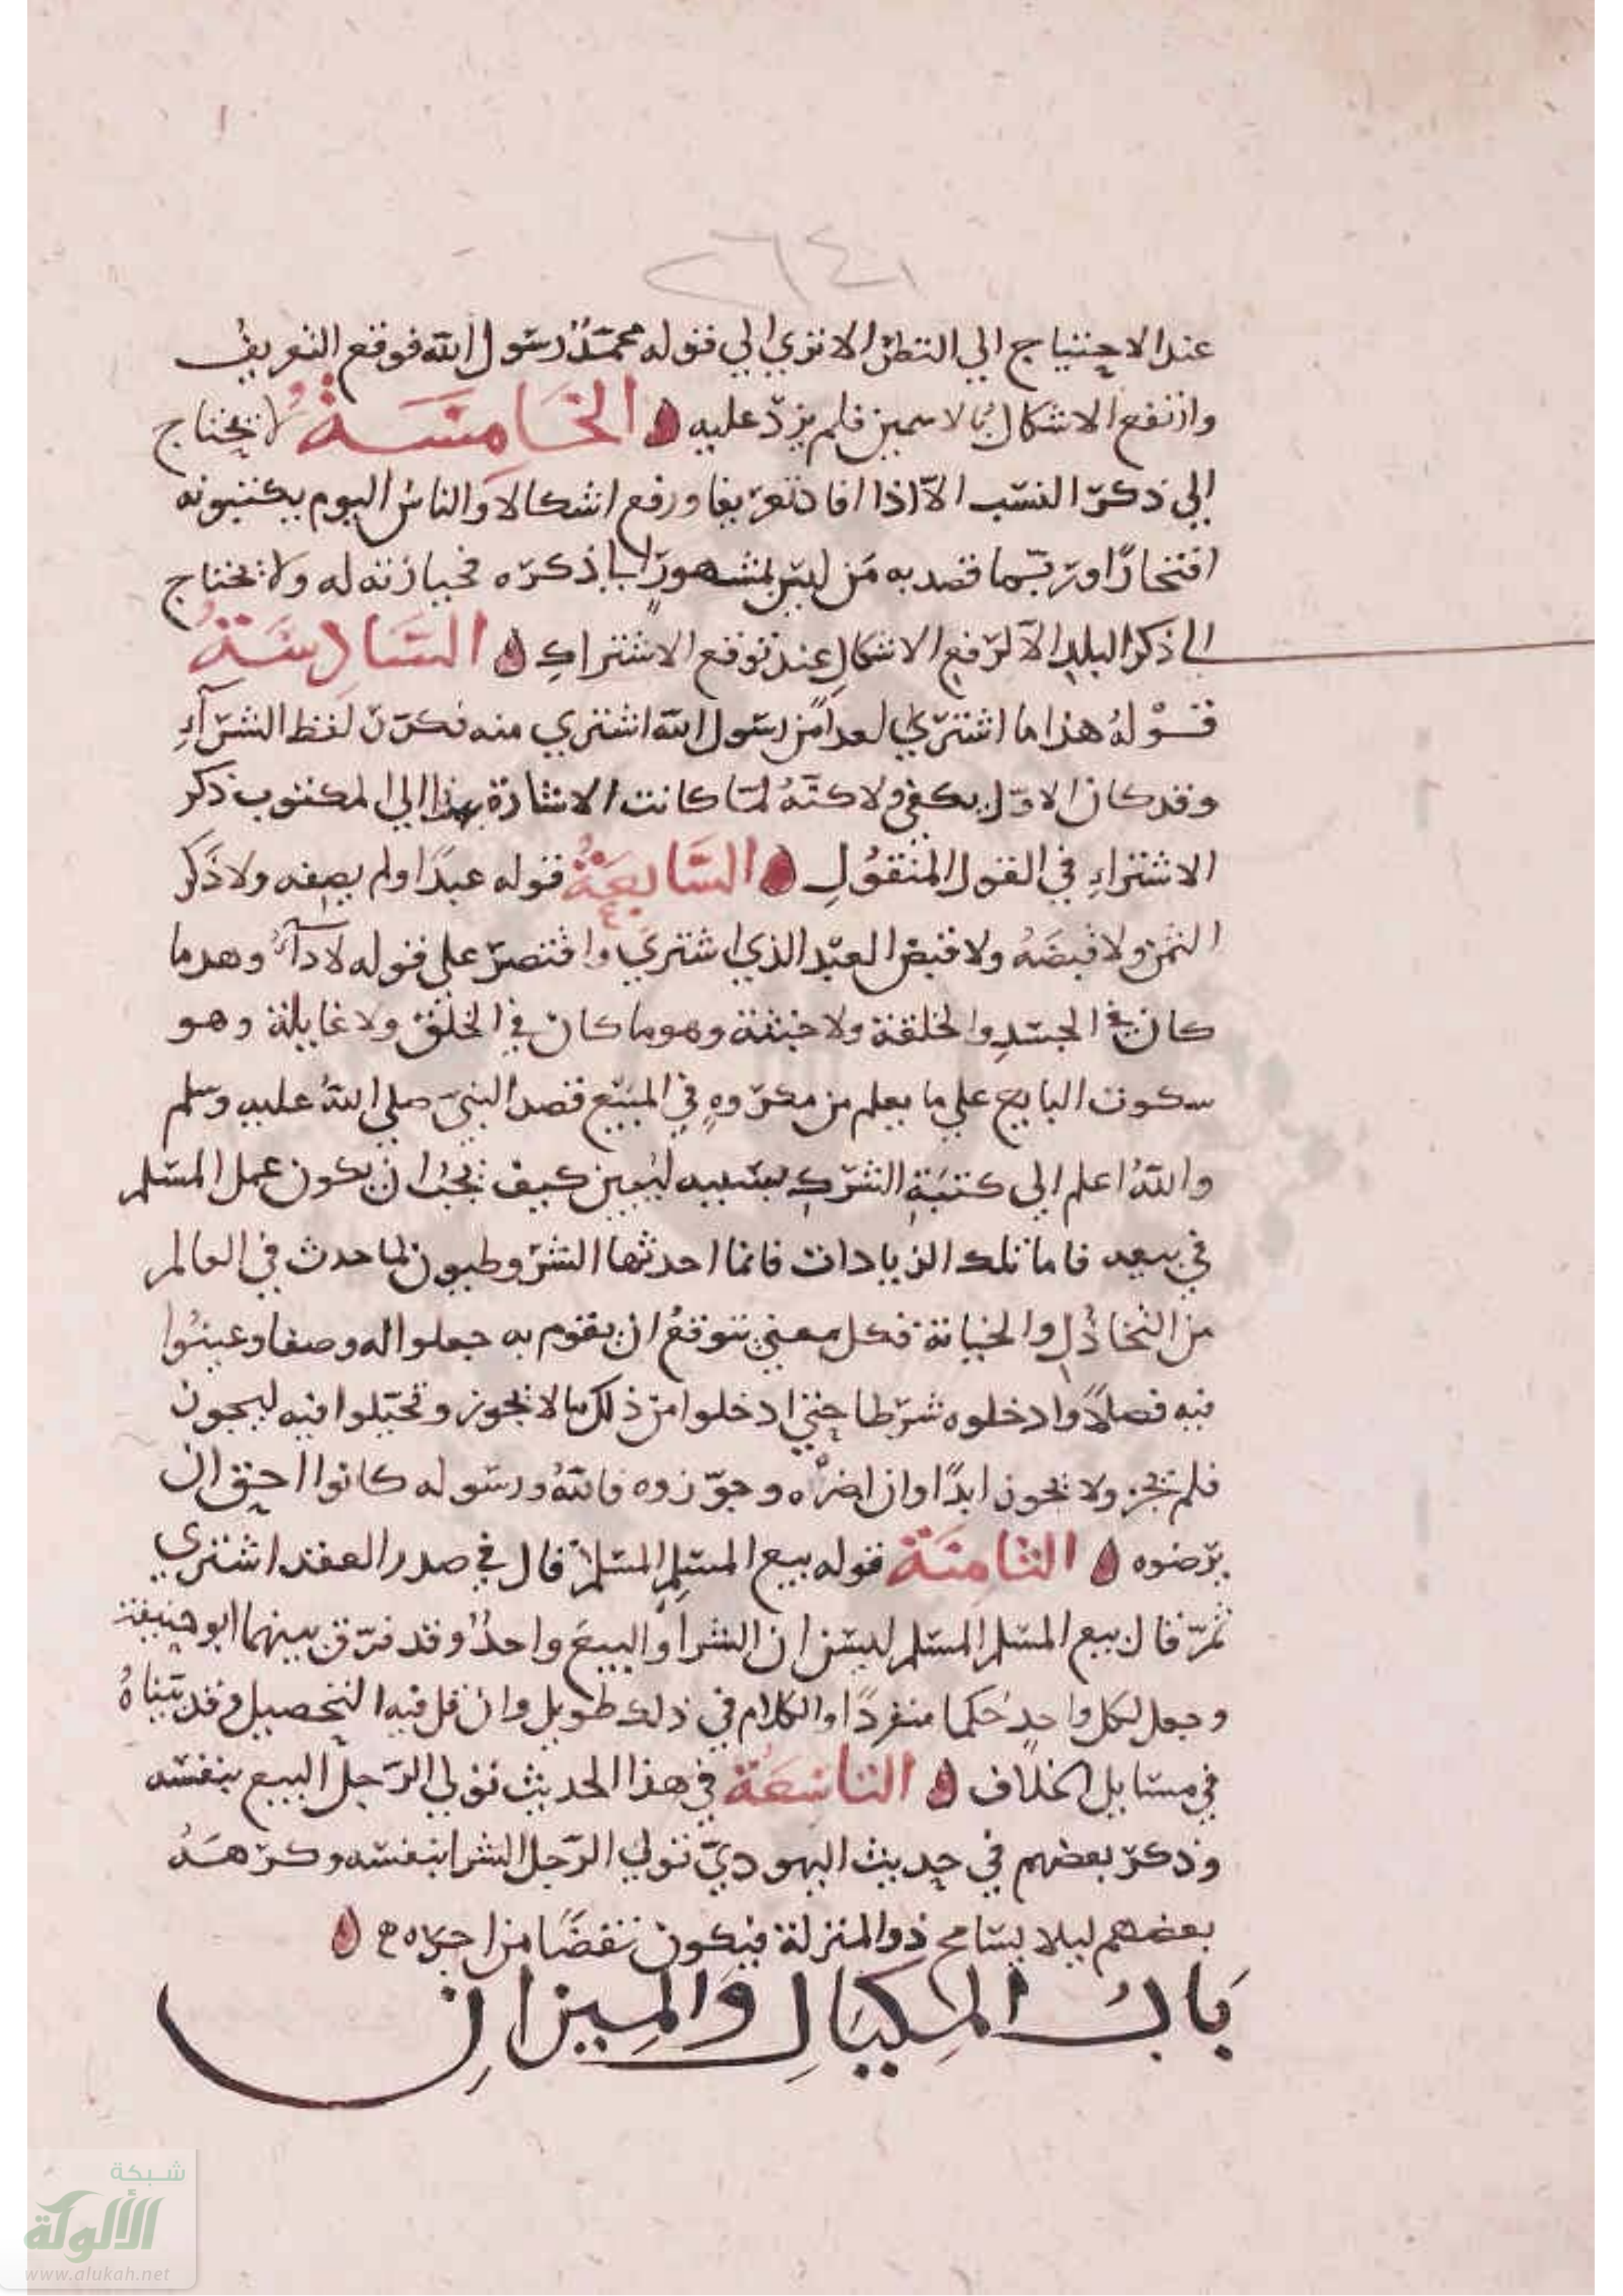 ٢٦٤١
عند الاحتياج الي النظر الا تري الي قوله محمد رسول الله فوقع التعريف
وارتفع الاشكال بالاسمين فلم يزد عليه الخَامسَةُ لا يحتاج
الي ذكر النسب الا اذا افاد تعريفا ورفع اشكالا والناس اليوم يكتبونه
افتخارًا وربما قصد به من ليس بمشهور ابا ذكره فحيازته له ولا يحتاج
الي ذكر البلد الا لرفع الاشكال عند توقع الاشتراك السَّادِسَةُ
قوله هذا ما اشتري لعدا من رسول الله اشتري منه فكرر لفظ الشرآءِ
وقد كان الاول يكفي ولاكنه لما كانت الاشارة بهذا الي المكتوب ذكر
الاشتراءِ في القول المنقولِ السَّابعَةُ قوله عبدًا ولم يصفه ولا ذكر
الثمن ولا قبضه ولا قبض العبد الذي اشتري واقتصر علي قوله لا دآءَ وهو ما
كان في الجسد والخلقة ولا خبثة وهو ما كان في الخلق ولا غايلة وهو
سكوت البايع علي ما يعلم من مكروهٍ في المبيع قصد النبي صلي الله عليه وسلم
والله اعلم الي كتبة الشرك بسببه ليبين كيف يجب ان يكون عمل المسلم
في بيعه فاما تلك الزيادات فانما احدثها الشروطيون لما حدث في العالم
من التخاذل والخيانة فكل معني يتوقع ان يقوم به جعلوا له وصفا وعينوا
فيه فصلاً وادخلوه شرطا حتي ادخلوا من ذلك ما لا يجوز وتحيلوا فيه ليجوز
فلم يجز ولا يجوز ابدًا وان امضاه وجوزوه فالله ورسوله كانوا احق ان
يرضوه الثامنَة قوله بيع المسلمِ المسلم قال في صدر العقد اشتري
ثم قال بيع المسلم المسلم ليبين ان الشرا والبيع واحد وقد فرق بينهما ابو حنيفة
وجعل لكل واحد حكما منفردًا والكلام في ذلك طويل وان قل فيه التحصيل وقد بيناهُ
في مسايل الخلاف التاسعَة في هذا الحديث تولي الرجل البيع بنفسه
وذكر بعضهم في حديث اليهودي تولي الرجل الشرا بنفسه وكرهَهُ
بعضهم ليلا يسامح ذو المنزلة فيكون نقصًا من اجره
بَابُ المِكيَالِ وَالمِيزانِ
شبكة
الألوكة
www.alukah.net